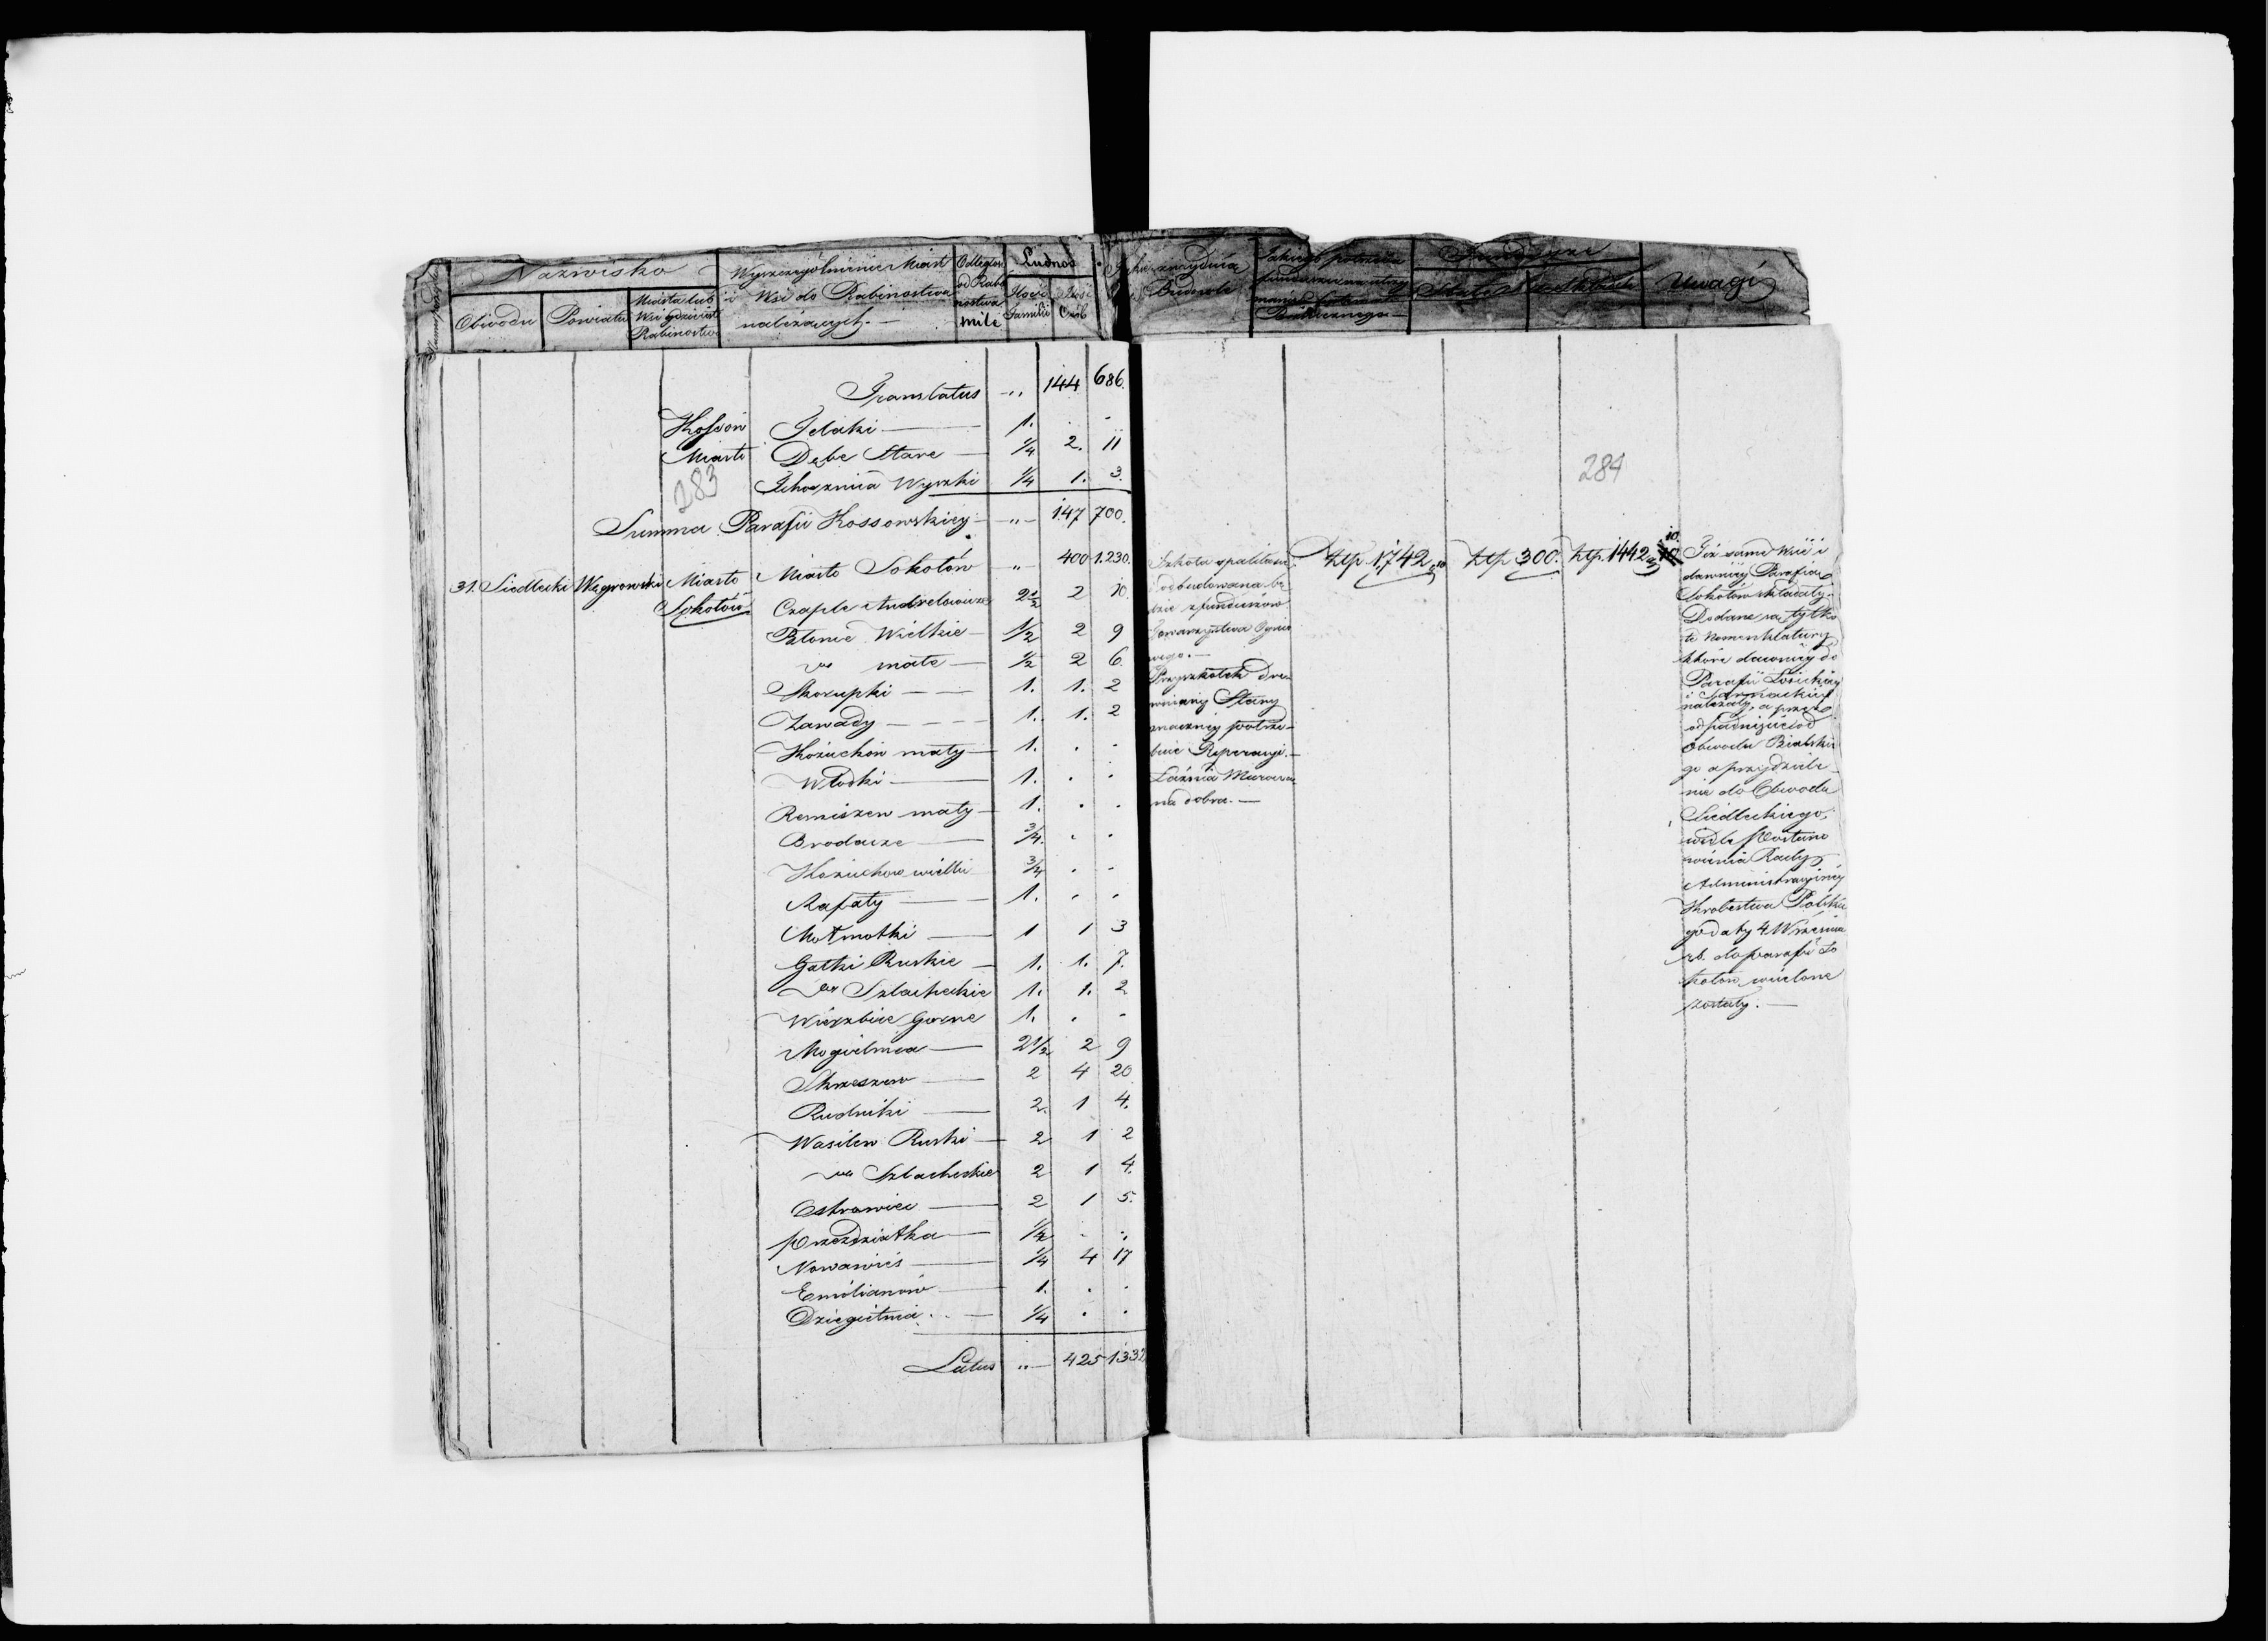 Nazwisko
Obwodu Powiatu Miasta lub Wsi gdzie jest Rabinostwo
Wyszczególnienie Miast
i Wsi do Rabinostwa
należących.—
Odległość od Rabinostwa mile
Ludność
Ilość Familii Ilość Osób
Uwagi
Translatus „ 144 686.
Kossów Telaki — 1. . -
Miasto Dębe Stare — 1/4 2. 11
283
Wyszki 1/4 1. 3.
Summa Parafii Kossowskiey — „— 147 700.
31. Siedlecki Węgrowski Miasto Sokołów
Miasto Sokołów „— 400 1.230.
Czaple Andrelewicze 2 1/2 2 10.
Błonie Wielkie — 1/2 2 9
„ małe — 1/2 2 6.
Skorupki — — 1. 1. 2
Zawady — — — 1. 1. 2
Kożuchów mały — 1. . .
Włodki — 1. . .
Remiszew mały — 1. . .
Brodacze — 3/4. . .
Kożuchów wielki 3/4 . .
Rafały — 1. . .
Mołmotki — 1 1 3
Gałki Ruskie — 1. 1. 7.
„ Szlacheckie 1. 1. 2
Wierzbice Gorne 1. . -
Mogielnica — 2 1/2 2 9
Skrzeszew — 2 4 20
Rudniki — 2. 1 4.
Wasilew Ruski — 2 1 2
„ Szlacheckie 2 1 4.
Ostrowiec — 2 1 5.
Przezdziatka — 1/4 . .
Nowawieś — 1/4 4 17
Emilianów — 1. . .
Dziegietnia . . — 1/4 . .
Latus „— 425 1332
284
Szkoła spaliła się
odbudowana bę-
dzie z funduszów
Towarzystwa Ognio
wego.—
Przyszkołek drew
niany Stary
znaczney potrze-
buie Reperacyi.—
Łaźnia Murowa
na dobra.—
złp. 1.742 „10 złp 300. złp. 1442 10.
Też same Wsie i
dawniey Parafią
Sokołów składały.
Dodane są tylko
te Nomenklatury
które dawniey do
Parafii Łosickiey
i Sarnackiey
należały, a przez
odpadnięcie od
Obwodu Bialskie
go a przydziele-
nie do Obwodu
Siedleckiego,
wedle Postano
wienia Rady
Administracyiney
Królestwa Polskie
go daty 4 Września
r.b. do parafii So
kołów wcielone
zostały.—